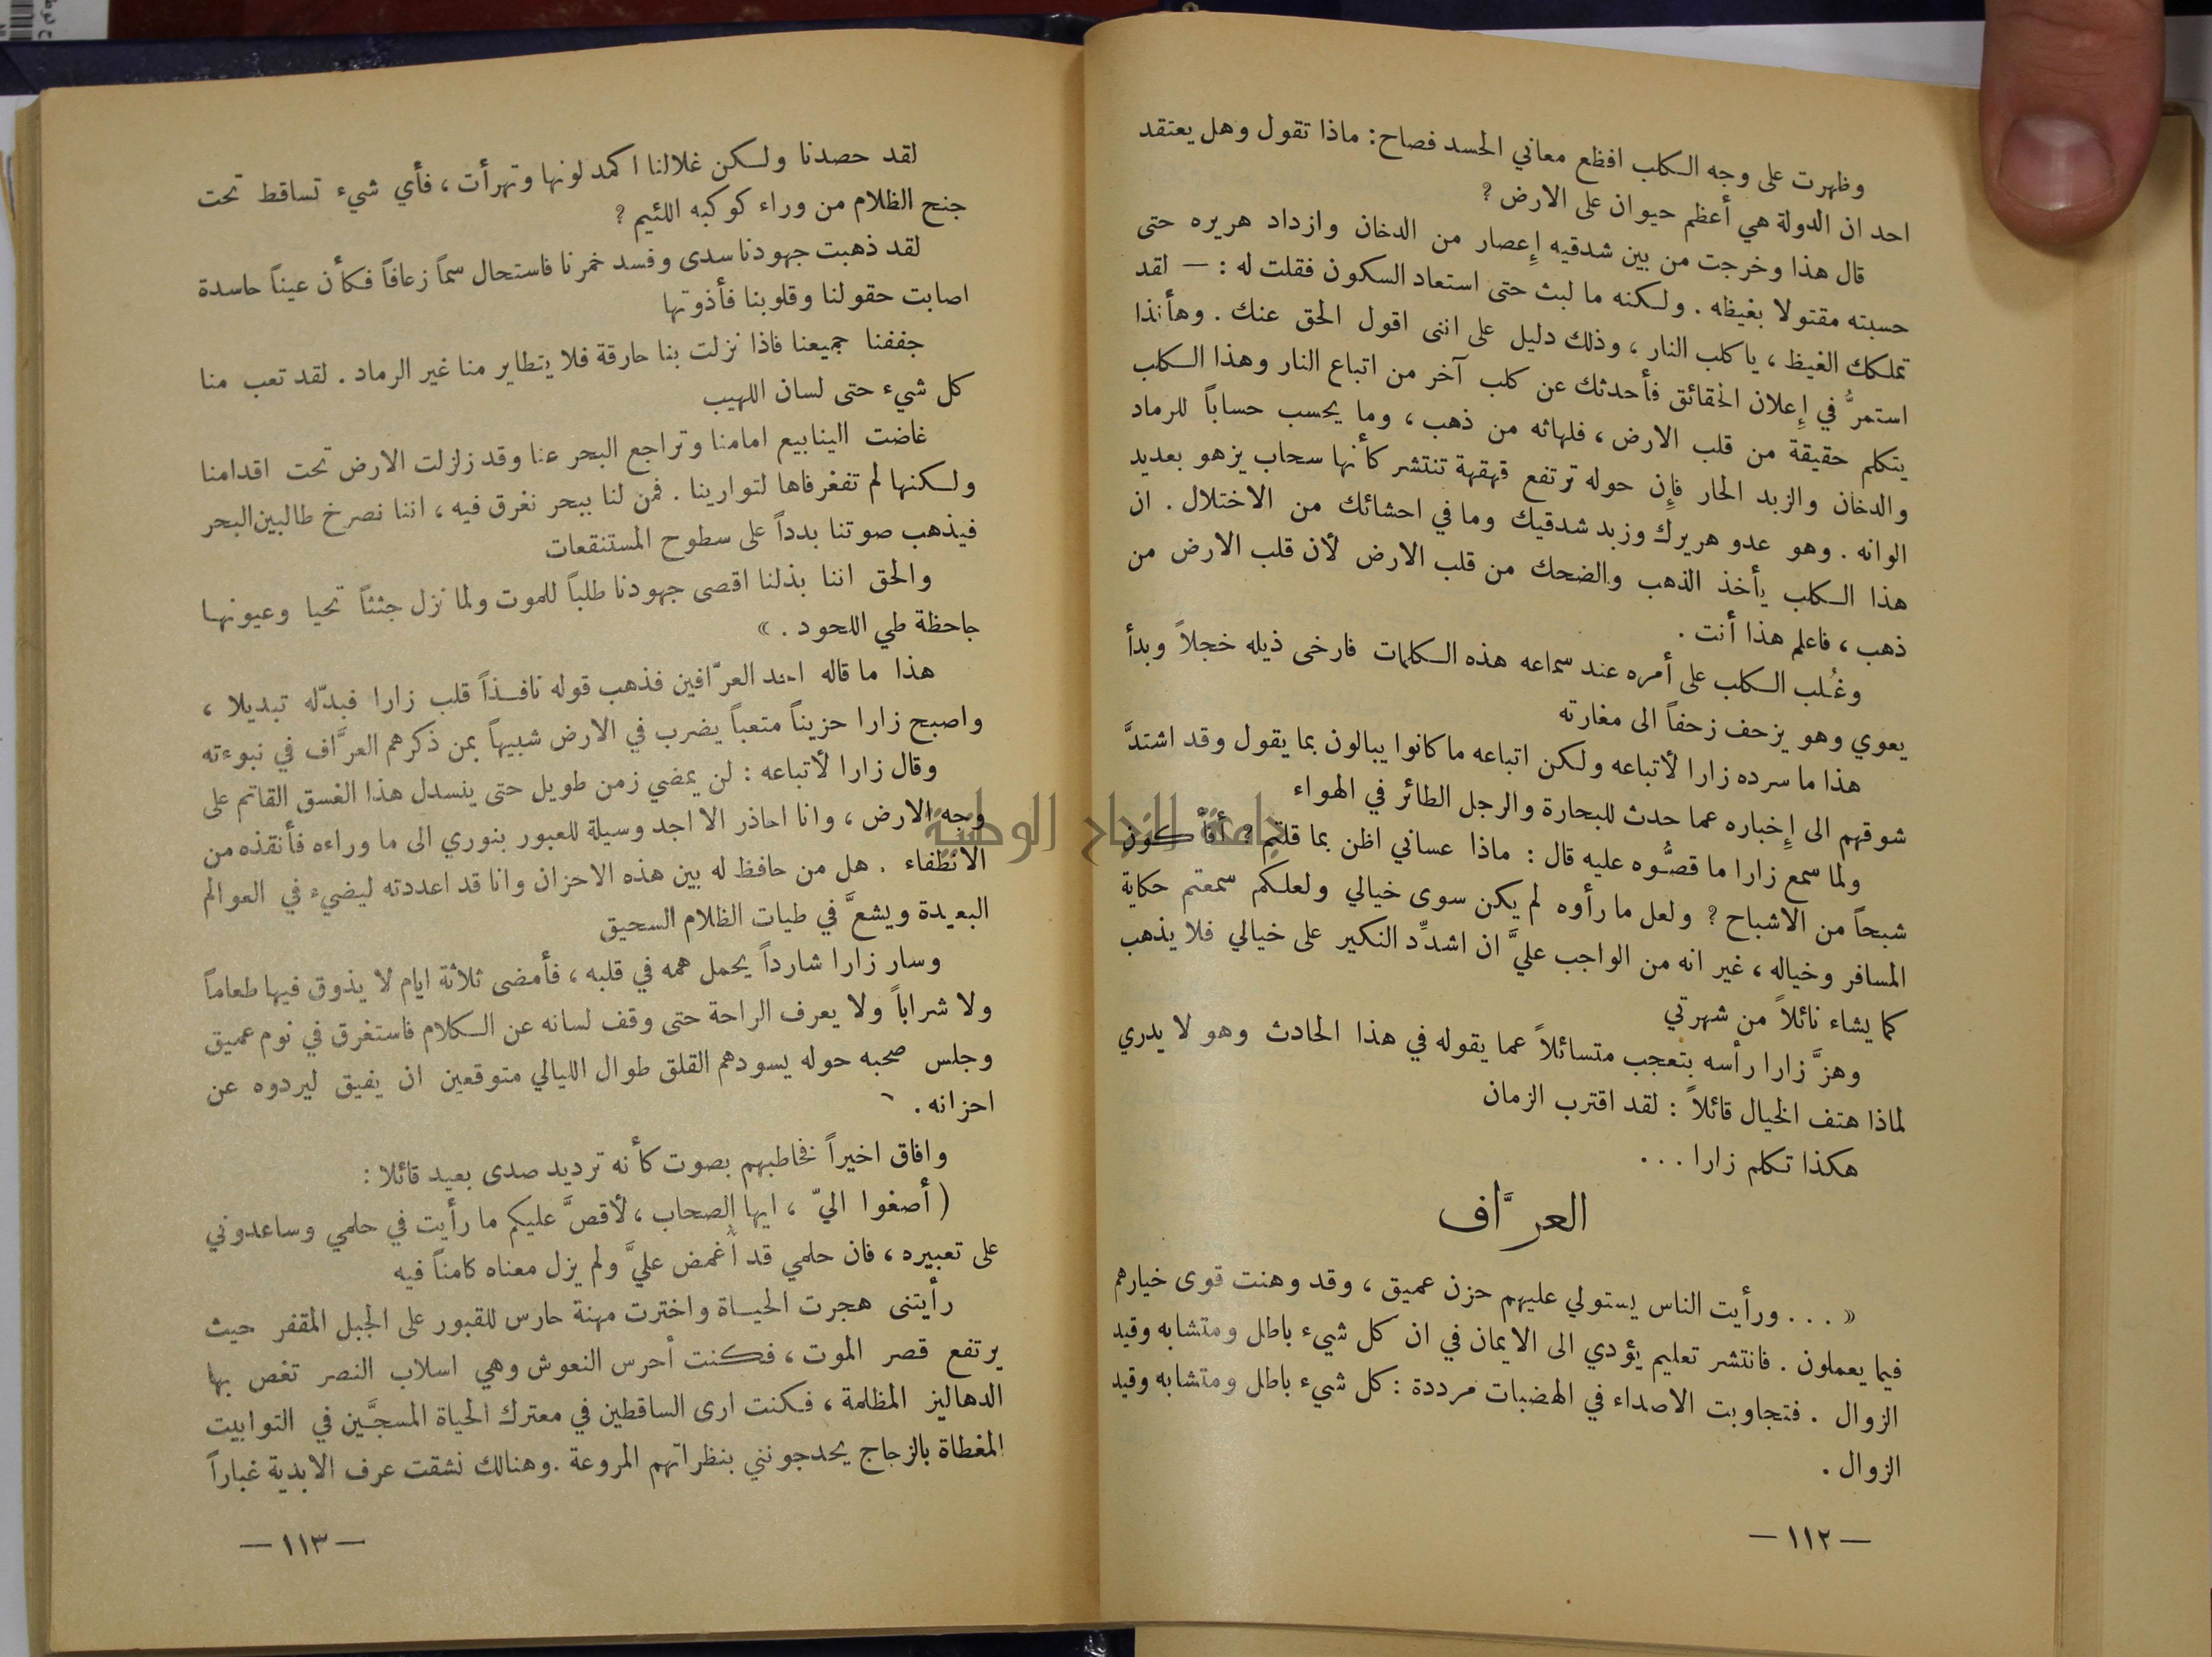 وظهرت على وجه الكلب افظع معاني الحسد فصاح: ماذا تقول وهل يعتقد
احد ان الدولة هي أعظم حيوان على الارض ?
قال هذا وخرجت من بين شدقيه إِعصار من الدخان وازداد هريره حتى
حسبته مقتولا بغيظه . ولكنه ما لبث حتى استعاد السكون فقلت له : — لقد
تملكك الغيظ ، يا كلب النار ، وذلك دليل على اننى اقول الحق عنك . وهأنذا
استمرُّ في إِعلان الحقائق فأحدثك عن كلب آخر من اتباع النار وهذا الكلب
يتكلم حقيقة من قلب الارض ، فلهاثه من ذهب ، وما يحسب حساباً للرماد
والدخان والزبد الحار فإِن حوله ترتفع قهقهة تنتشر كأنها سحاب يزهو بعديد
الوانه . وهو عدو هريرك وزبد شدقيك وما في احشائك من الاختلال . ان
هذا الكلب يأخذ الذهب والضحك من قلب الارض لأن قلب الارض من
ذهب ، فاعلم هذا أنت .
وغُلب الكلب على أمره عند سماعه هذه الكلمات فارخى ذيله خجلاً وبدأ
يعوي وهو يزحف زحفاً الى مغارته
هذا ما سرده زارا لأتباعه ولكن اتباعه ما كانوا يبالون بما يقول وقد اشتدَّ
شوقهم الى إِخباره عما حدث للبحارة والرجل الطائر في الهواء
ولما سمع زارا ما قصُّوه عليه قال : ماذا عساني اظن بما قلتم ? أفأ كون
شبحاً من الاشباح ? ولعل ما رأوه لم يكن سوى خيالي ولعلكم سمعتم حكاية
المسافر وخياله ، غير انه من الواجب عليَّ ان اشدِّد النكير على خيالي فلا يذهب
كما يشاء نائلاً من شهرتي
وهزَّ زارا رأسه بتعجب متسائلاً عما يقوله في هذا الحادث وهو لا يدري
لماذا هتف الخيال قائلاً : لقد اقترب الزمان
هكذا تكلم زارا . . .
العرَّاف
« . . . ورأيت الناس يستولي عليهم حزن عميق ، وقد وهنت قوى خيارهم
فيما يعملون . فانتشر تعليم يؤدي الى الايمان في ان كل شيء باطل ومتشابه وقيد
الزوال . فتجاوبت الاصداء في الهضبات مرددة : كل شيء باطل ومتشابه وقيد
الزوال .
— ١١٢ —
لقد حصدنا ولكن غلالنا اكمد لونها وتهرأت ، فأي شيء تساقط تحت
جنح الظلام من وراء كوكبه اللئيم ?
لقد ذهبت جهودنا سدى وفسد خمرنا فاستحال سماً زعافاً فكأن عيناً حاسدة
اصابت حقولنا وقلوبنا فأذوتها
جففنا جميعنا فاذا نزلت بنا حارقة فلا يتطاير منا غير الرماد . لقد تعب منا
كل شيء حتى لسان اللهيب
غاضت الينابيع امامنا وتراجع البحر عنا وقد زلزلت الارض تحت اقدامنا
ولكنها لم تفغر فاها لتوارينا . فمن لنا ببحر نغرق فيه ، اننا نصرخ طالبين البحر
فيذهب صوتنا بدداً على سطوح المستنقعات
والحق اننا بذلنا اقصى جهودنا طلباً للموت ولما نزل جثثاً تحيا وعيونها
جاحظة طي اللحود . »
هذا ما قاله احد العرّافين فذهب قوله نافذاً قلب زارا فبدّله تبديلا ،
واصبح زارا حزيناً متعباً يضرب في الارض شبيهاً بمن ذكرهم العرَّاف في نبوءته
وقال زارا لأتباعه : لن يمضي زمن طويل حتى ينسدل هذا الغسق القاتم على
وجه الارض ، وانا احاذر الا اجد وسيلة للعبور بنوري الى ما وراءه فأنقذه من
الانطفاء . هل من حافظ له بين هذه الاحزان وانا قد اعددته ليضيء في العوالم
البعيدة ويشعَّ في طيات الظلام السحيق
وسار زارا شارداً يحمل همه في قلبه ، فأمضى ثلاثة ايام لا يذوق فيها طعاماً
ولا شراباً ولا يعرف الراحة حتى وقف لسانه عن الكلام فاستغرق في نوم عميق
وجلس صحبه حوله يسودهم القلق طوال الليالي متوقعين ان يفيق ليردوه عن
احزانه .
وافاق اخيراً فخاطبهم بصوت كأنه ترديد صدى بعيد قائلا :
( أصغوا اليّ ، ايها الصحاب ، لأقصَّ عليكم ما رأيت في حلمي وساعدوني
على تعبيره ، فان حلمي قد أغمض عليَّ ولم يزل معناه كامناً فيه
رأيتنى هجرت الحياة واخترت مهنة حارس للقبور على الجبل المقفر حيث
يرتفع قصر الموت ، فكنت أحرس النعوش وهي اسلاب النصر تغص بها
الدهاليز المظلمة ، فكنت ارى الساقطين في معترك الحياة المسجَّين في التوابيت
المغطاة بالزجاج يحدجونني بنظراتهم المروعة . وهنالك نشقت عرف الابدية غباراً
— ١١٣ —
جامعة النجاح الوطنية